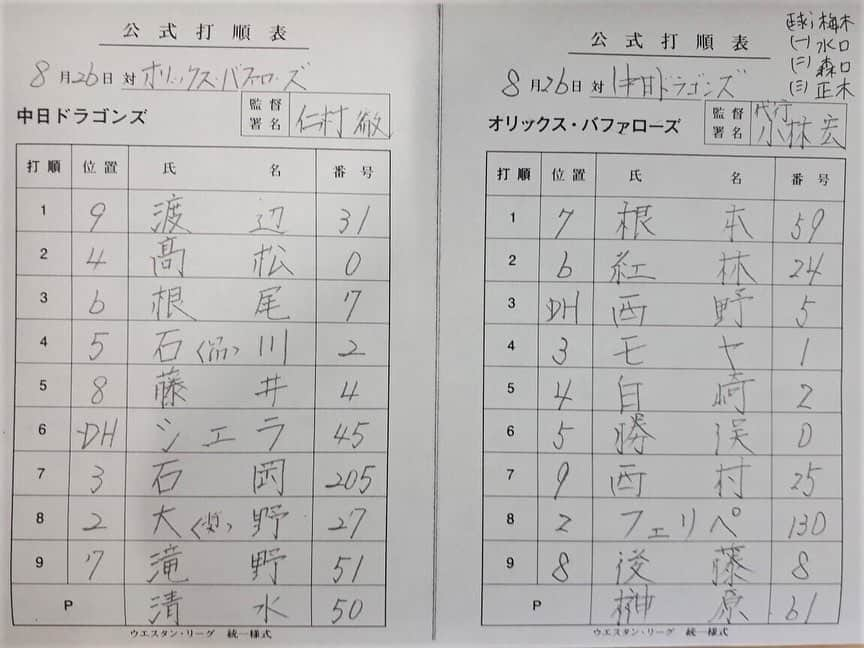 公式打順表
8月26日 対 オリックス・バファローズ
中日ドラゴンズ 監督署名 仁村徹
打順 位置 氏名 番号
1 9 渡辺 31
2 4 髙松 0
3 6 根尾 7
4 5 石〈昂〉川 2
5 8 藤井 4
6 DH シエラ 45
7 3 石岡 205
8 2 大〈奨〉野 27
9 7 滝野 51
P 清水 50
ウエスタン・リーグ 統一様式
(球)梅木
(一)水口
(二)森口
(三)正木
公式打順表
8月26日 対 中日ドラゴンズ
オリックス・バファローズ 監督署名 代行 小林宏
打順 位置 氏名 番号
1 7 根本 59
2 6 紅林 24
3 DH 西野 5
4 3 モヤ 1
5 4 白崎 2
6 5 勝俣 0
7 9 西村 25
8 2 フェリペ 130
9 8 後藤 8
P 榊原 61
ウエスタン・リーグ 統一様式